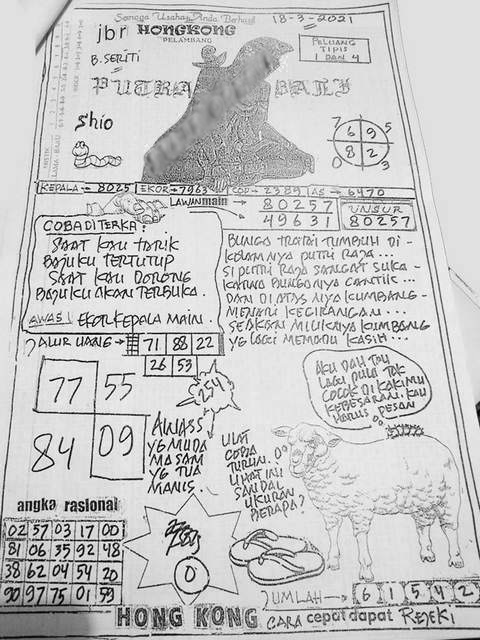 Semoga Usaha Anda Berhasil
18-3-2021
jbr HONGKONG
PELAMBANG
B. SERITI
PELUANG
TIPIS
1 DAN 4
PUTRA BALI
Shio
7 5
6 9
8 2
0 3
KEPALA → 8025 EKOR → 7963 COP → 2389 AS → 6470
LAWAN main → 80257
49631
UNSUR
80257
COBA DITERKA:
SAAT KAU TARIK
BAJUKU TERTUTUP
SAAT KAU DORONG
BAJUKU AKAN TERBUKA.
AWAS! EKOR KEPALA MAIN.
BUNGA TRATAI TUMBUH DI -
KOLAM NYA PUTRI RAJA...
SI PUTRI RAJA SANGAT SUKA -
KARNA BUNGANYA CANTIK...
DAN DI ATAS NYA KUMBANG -
MENARI KEGIRANGAN...
SEAKAN MILIKNYA KUMBANG
YG LAGI MEMADU KASIH...
JALUR UANG → 71 88 22
26 53
77 55
84 09
254
AWASS
YG MUDA
MASAM
YG TUA
MANIS.
AKU DAH TAU
LAGI PULA TAK
COCOK DI KAKIMU
KEBESARAN. KAU
HARUS PESAN
ULAT
COBA
TURUN.
LIHAT INI
SANDAL
UKURAN
BERAPA?
angka rasional
02 57 03 17 00
81 06 35 92 48
38 62 04 54 20
90 97 75 01 59
0
JUMLAH → 6 1 5 4 2
HONG KONG CARA cepat dapat REJEKI